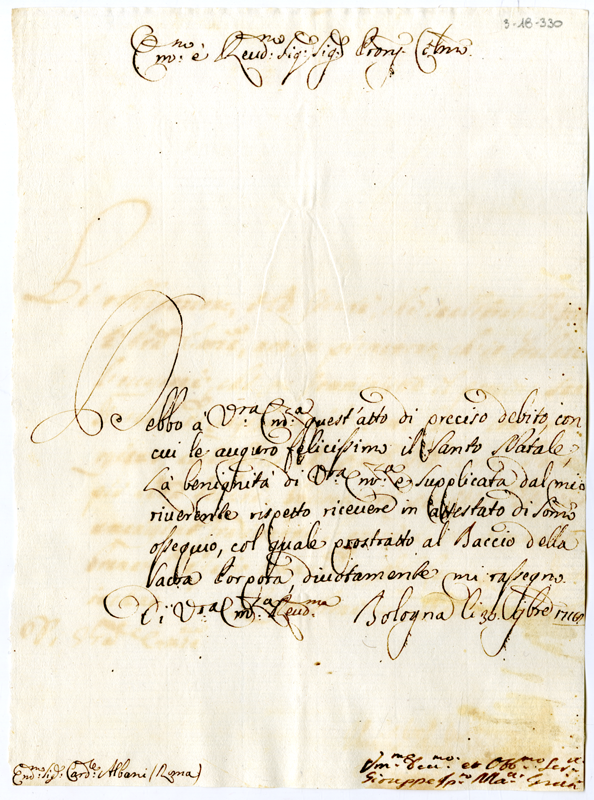 3-18-330
Em:no è Reud:mo Sig:r Sig:r Pron: Colmo
Debbo à V:ra Em:za quest'atto di preciso debito, con
cui le auguro felicissimo il Santo Natale;
La benignità di V:ra Em:za è supplicata dal mio
riverente rispetto ricevere in attestato di somo
ossequio, col quale prostratto al Baccio della
Sacra Porpora, divotamente mi rassegno
Di V:ra Em:za Reud:ma Bologna li
Em:mo Sig:r Card:le Albani (Roma)
Vm:mo et Obb:mo
Giuseppe